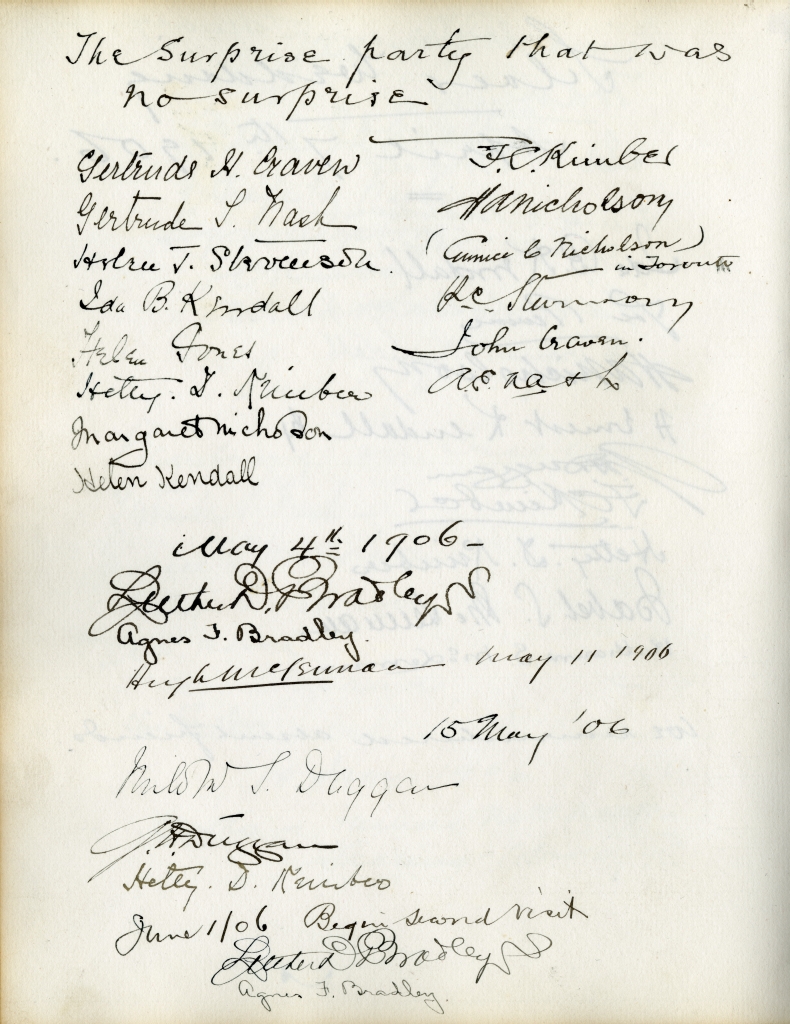 The Surprise party that was
no surprise
Gertrude H. Craven
Gertrude S. Nash
Helen T. Stevenson.
Ida B. Kendall
Helen Jones
Hetty. D. Kimber
Margaret Nicholson
Helen Kendall
F. C. Kimber
H A Nicholson
(Eunice C Nicholson)
in Toronto
John Craven.
A. E. Nash
May 4th 1906-
Luther D. Bradley
Agnes F. Bradley.
Hugh McLennan May 11 1906
15 May '06
Mildred S. Duggan
G. H. Duggan
Hetty. D. Kimber
June 1/06 Begin second visit
Luther D Bradley
Agnes F. Bradley.